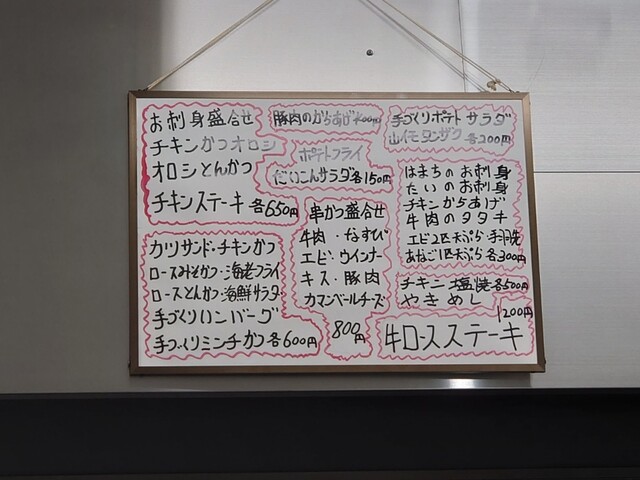 お刺身盛合せ
チキンかつオロシ
オロシとんかつ
チキンステーキ各650円
豚肉のからあげ400円
ポテトフライ
だいこんサラダ各150円
手づくりポテトサラダ
山イモタンザク各200円
カツサンド・チキンかつ
ロースみそかつ・海老フライ
ロースとんかつ・海鮮サラダ
手づくりハンバーグ
手づくりミンチかつ各600円
串かつ盛合せ
牛肉・なすび
エビ・ウインナー
キス・豚肉
カマンベールチーズ
800円
はまちのお刺身
たいのお刺身
チキンからあげ
牛肉のタタキ
エビ2匹天ぷら・手羽先
あなご1匹天ぷら各300円
チキン塩焼各500円
やきめし
1200円
牛ロースステーキ